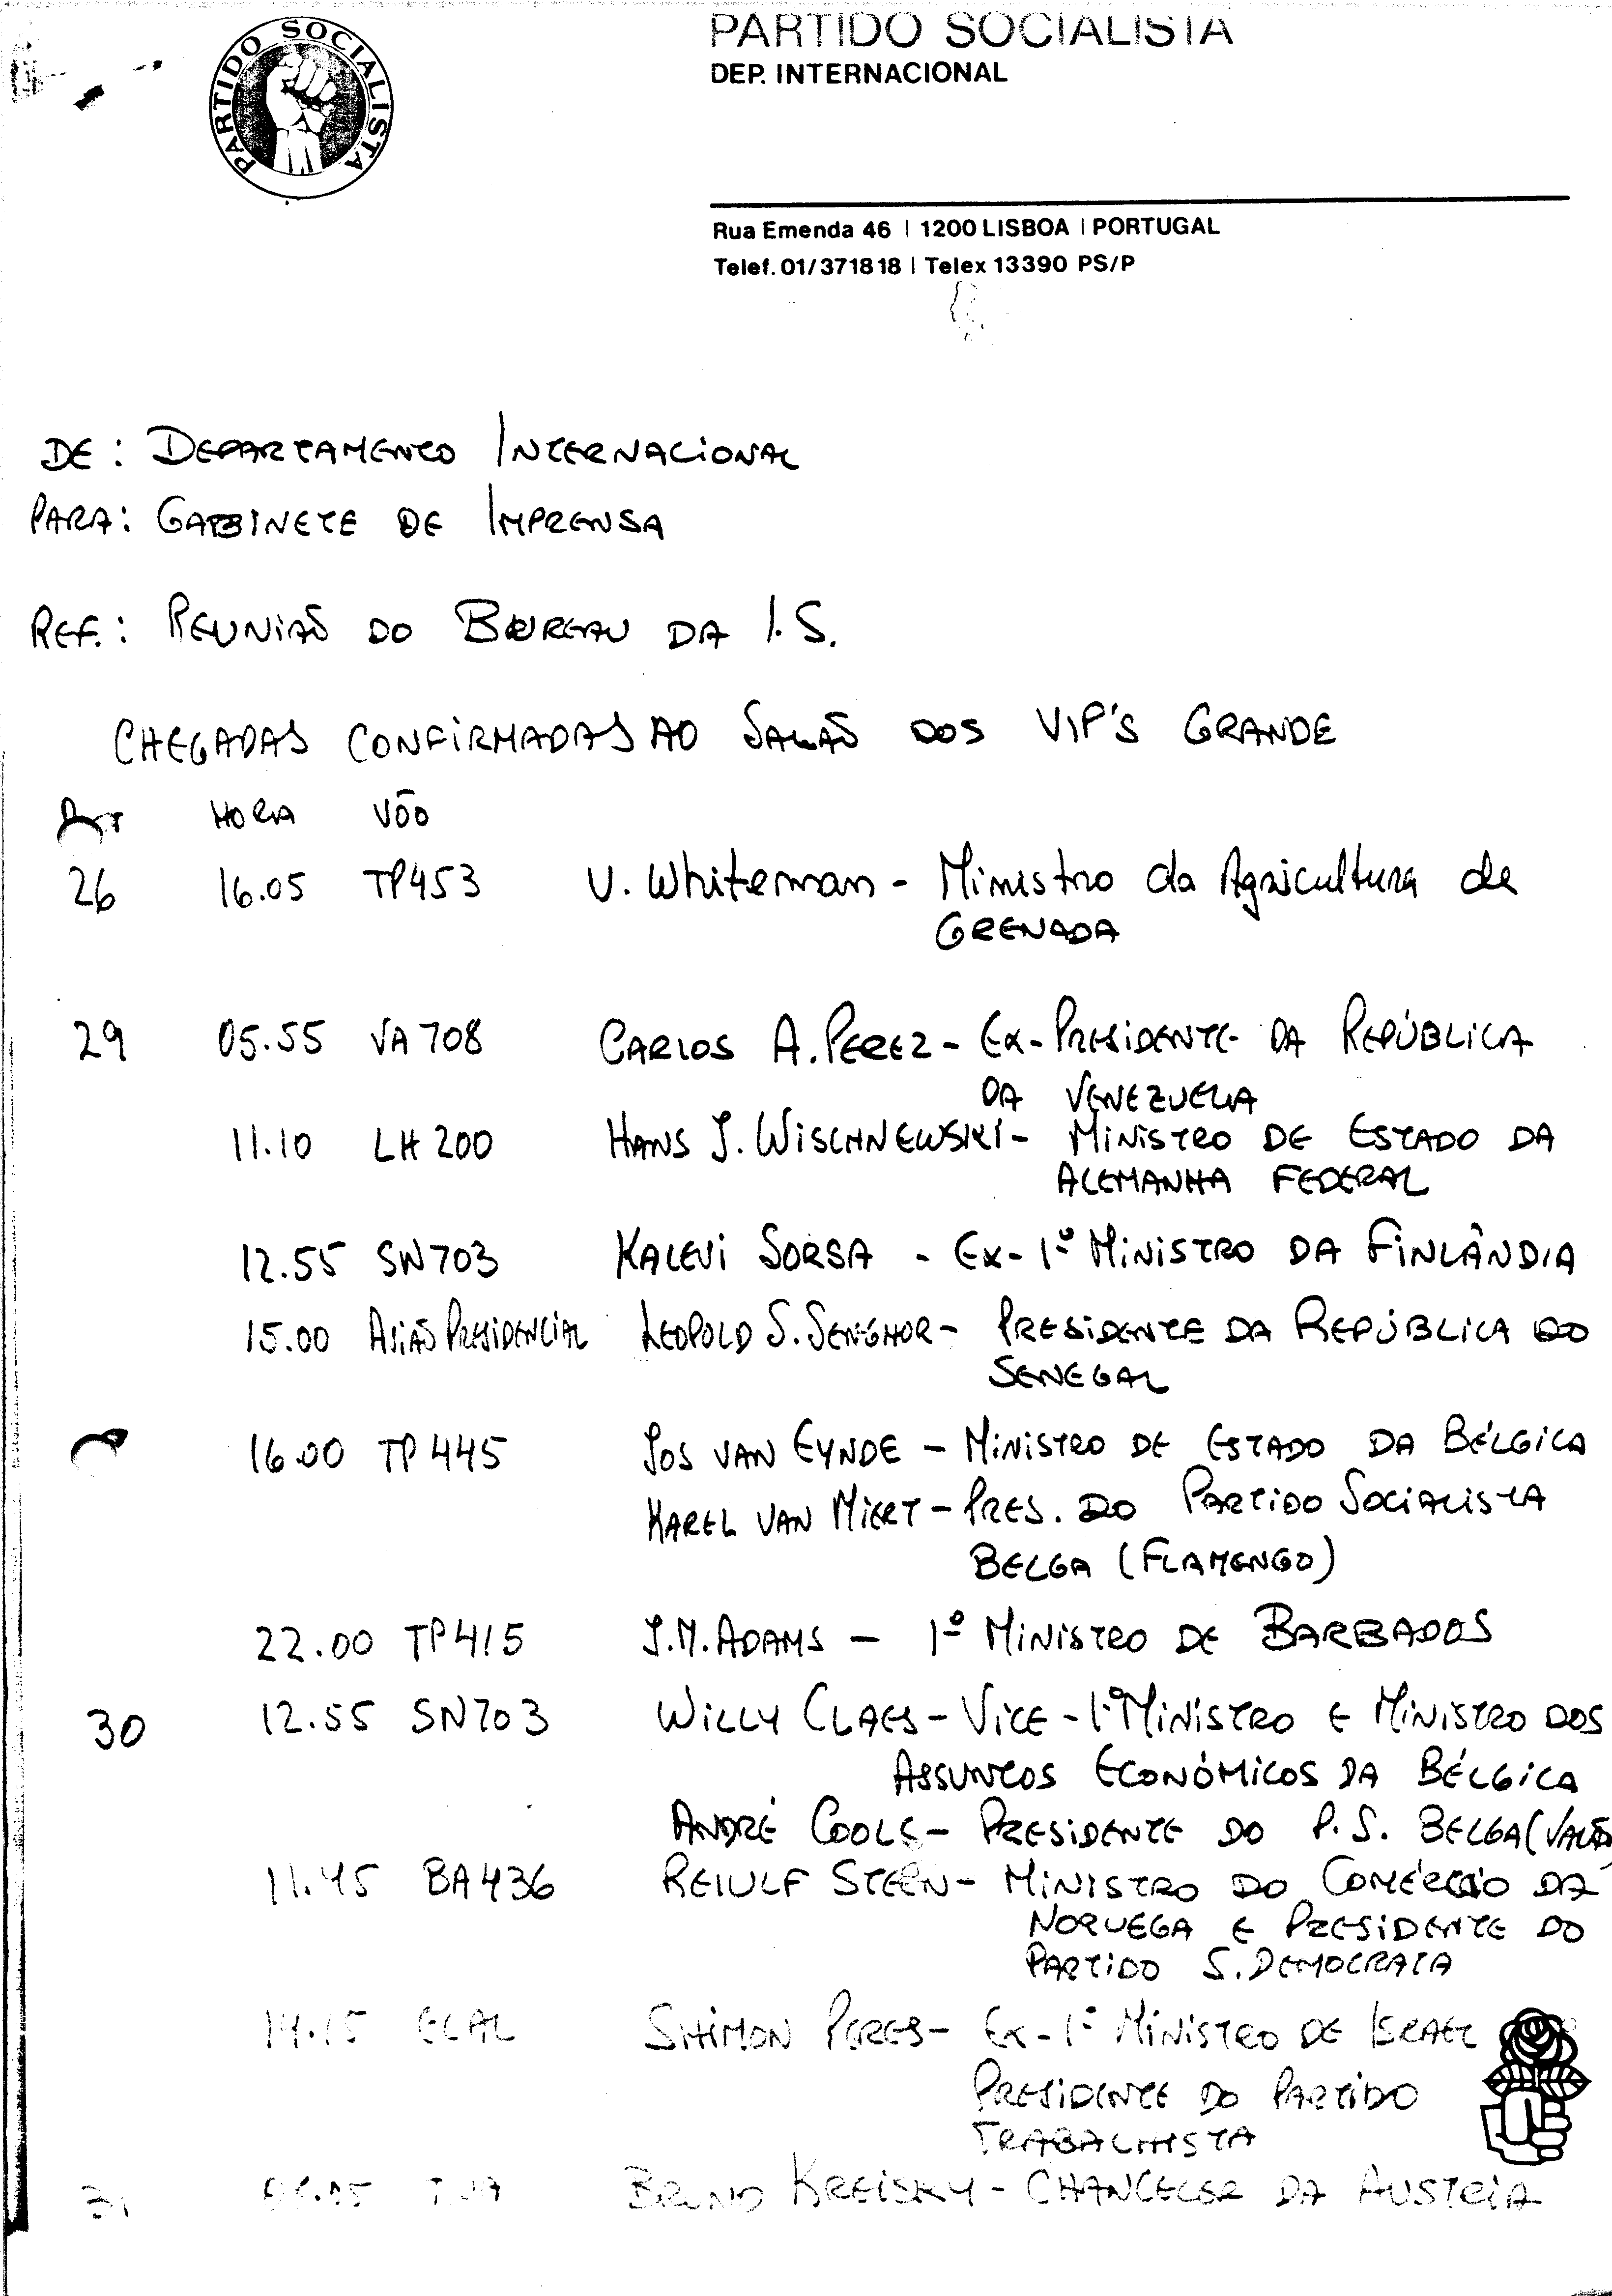 PARTIDO SOCIALISTA
PARTIDO SOCIALISTA
DEP. INTERNACIONAL
Rua Emenda 46 | 1200 LISBOA | PORTUGAL
Telef. 01/371818 | Telex 13390 PS/P
DE: DEPARTAMENTO INTERNACIONAL
PARA: GABINETE DE IMPRENSA
REF.: REUNIÃO DO BUREAU DA I.S.
CHEGADAS CONFIRMADAS AO SALÃO DOS VIP'S GRANDE
HORA VÔO
26 16.05 TP453 U. Whiteman - Ministro da Agricultura de
GRENADA
29 05.55 VA708 CARLOS A. PEREZ - EX-PRESIDENTE DA REPÚBLICA
DA VENEZUELA
11.10 LH200 HANS J. WISCHNEWSKI - MINISTRO DE ESTADO DA
ALEMANHA FEDERAL
12.55 SN703 KALEVI SORSA - EX-1º MINISTRO DA FINLÂNDIA
15.00 AVIÃO PRESIDENCIAL LEOPOLD S. SENGHOR - PRESIDENTE DA REPÚBLICA DO
SENEGAL
16.00 TP445 JOS VAN EYNDE - MINISTRO DE ESTADO DA BÉLGICA
KAREL VAN MIERT - PRES. DO PARTIDO SOCIALISTA
BELGA (FLAMENGO)
22.00 TP415 J.M. ADAMS - 1º MINISTRO DE BARBADOS
30 12.55 SN703 WILLY CLAES - VICE-1º MINISTRO E MINISTRO DOS
ASSUNTOS ECONÓMICOS DA BÉLGICA
ANDRÉ COOLS - PRESIDENTE DO P.S. BELGA (VALÃO
11.45 BA436 REIULF STEEN - MINISTRO DO COMÉRCIO DA
NORUEGA E PRESIDENTE DO
PARTIDO S. DEMOCRATA
14.15 ELAL SHIMON PERES - EX-1º MINISTRO DE ISRAEL
PRESIDENTE DO PARTIDO
TRABALHISTA
31 BRUNO KREISKY - CHANCELER DA AUSTRIA